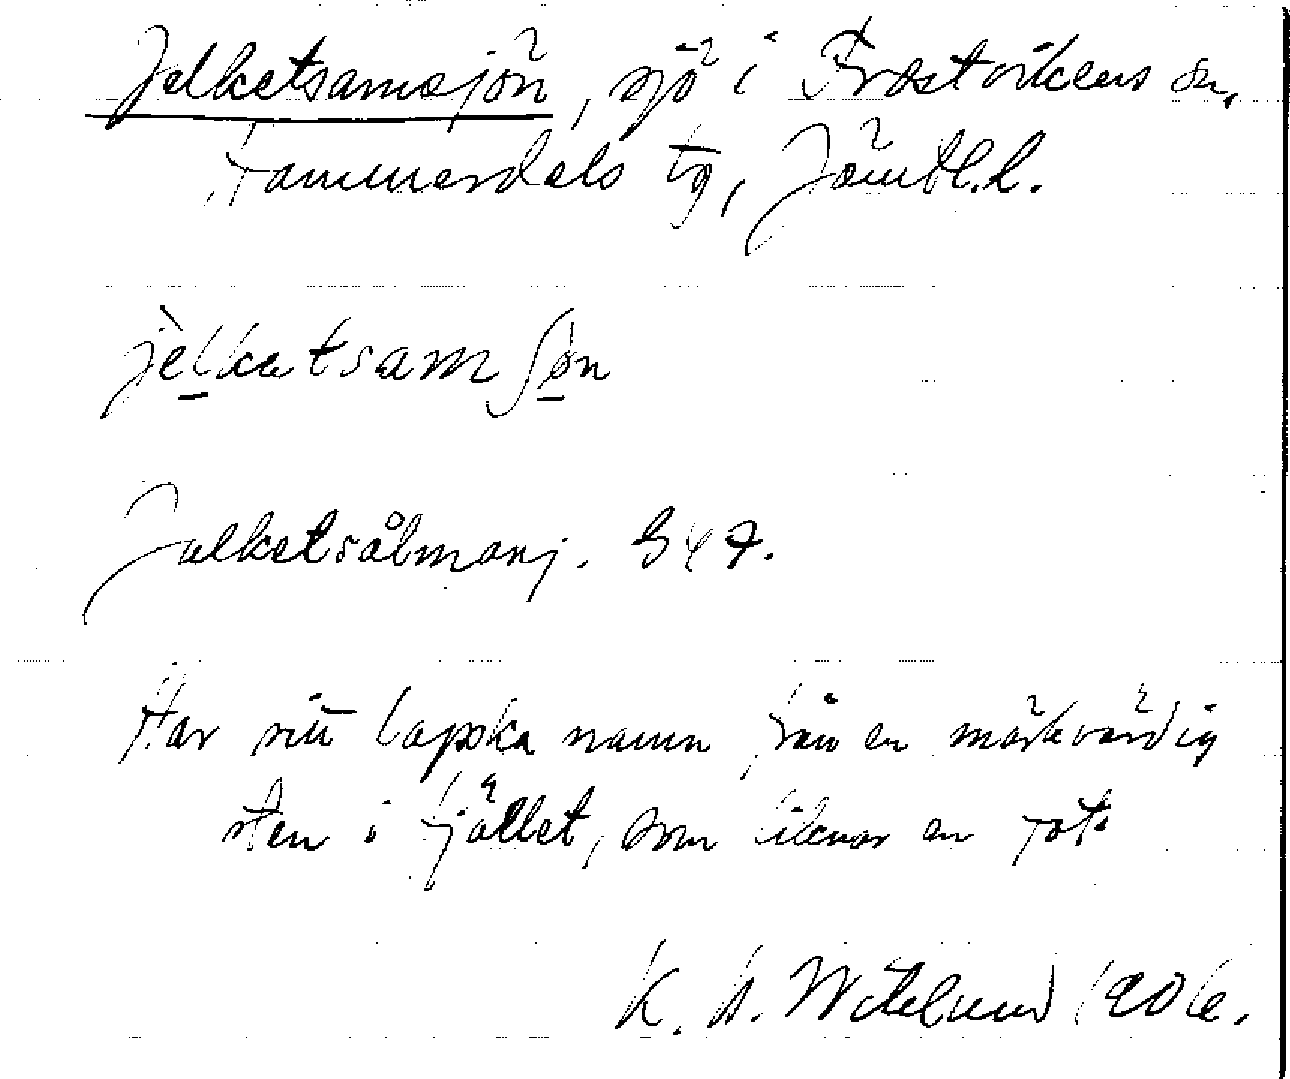 Jelketsamsjön, sjö i Frostvikens sn,
Hammerdals tg, Jämtl.l.
jèlkatsamʃøn
Jalketsålmanj. S47.
Har sitt lapska namn från en märkvärdig
sten i fjället, som liknar en fot
K. B. Wiklund 1906.